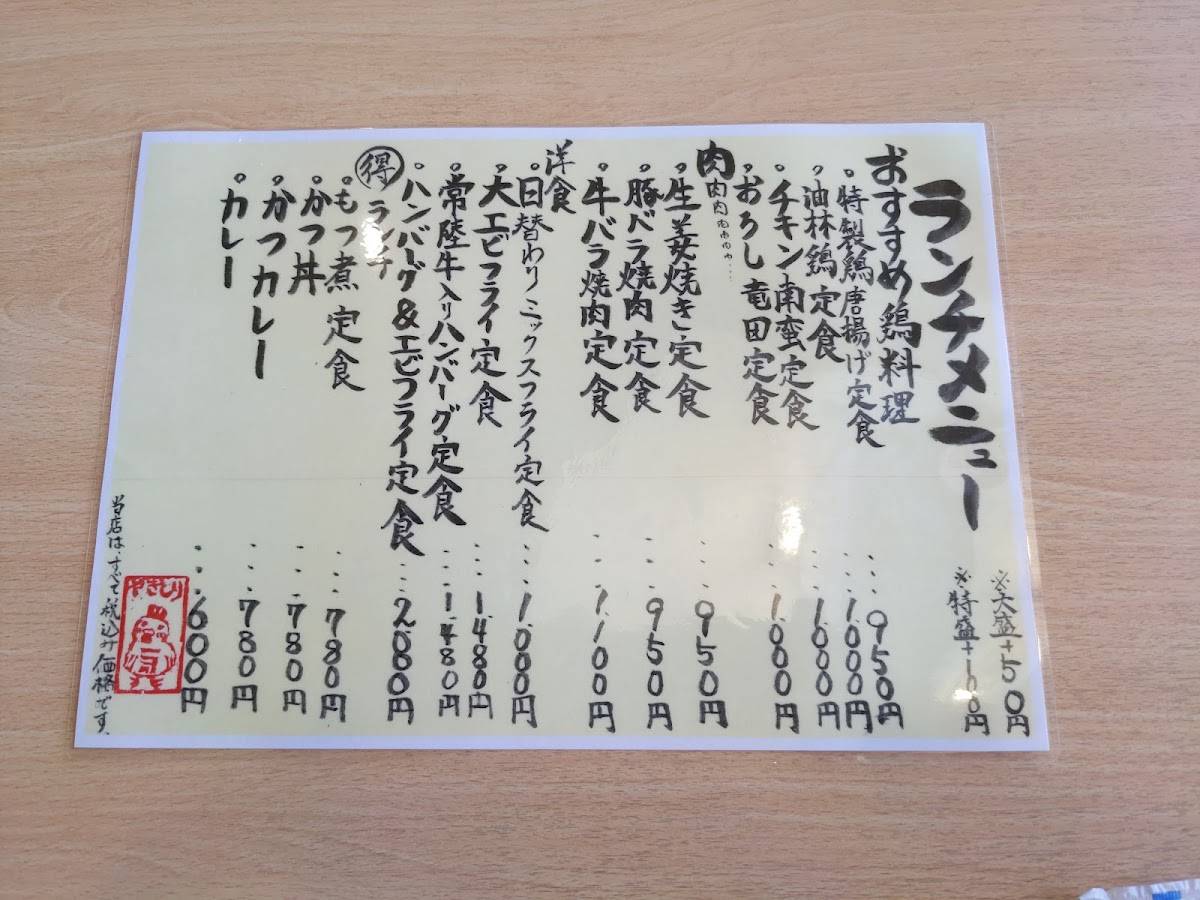 ランチメニュー
※大盛+50円
※特盛+100円
おすすめ鶏料理
。特製鶏唐揚げ定食 ・・・950円
。油林鶏定食 ・・・1.000円
。チキン南蛮定食 ・・・1.000円
。おろし竜田定食 ・・・1.000円
肉肉肉肉肉肉肉...
。生姜焼き定食 ・・・950円
。豚バラ焼肉定食 ・・・950円
。牛バラ焼肉定食 ・・・1.100円
洋食
。日替わりミックスフライ定食 ・・・1.000円
。大エビフライ定食 ・・・1.480円
。常陸牛入りハンバーグ定食 ・・・1.480円
。ハンバーグ&エビフライ定食 ・・・2.000円
得ランチ
。もつ煮定食 ・・・780円
。かつ丼 ・・・780円
。かつカレー ・・・780円
。カレー ・・・600円
やきとり
当店は、すべて税込み価格です。